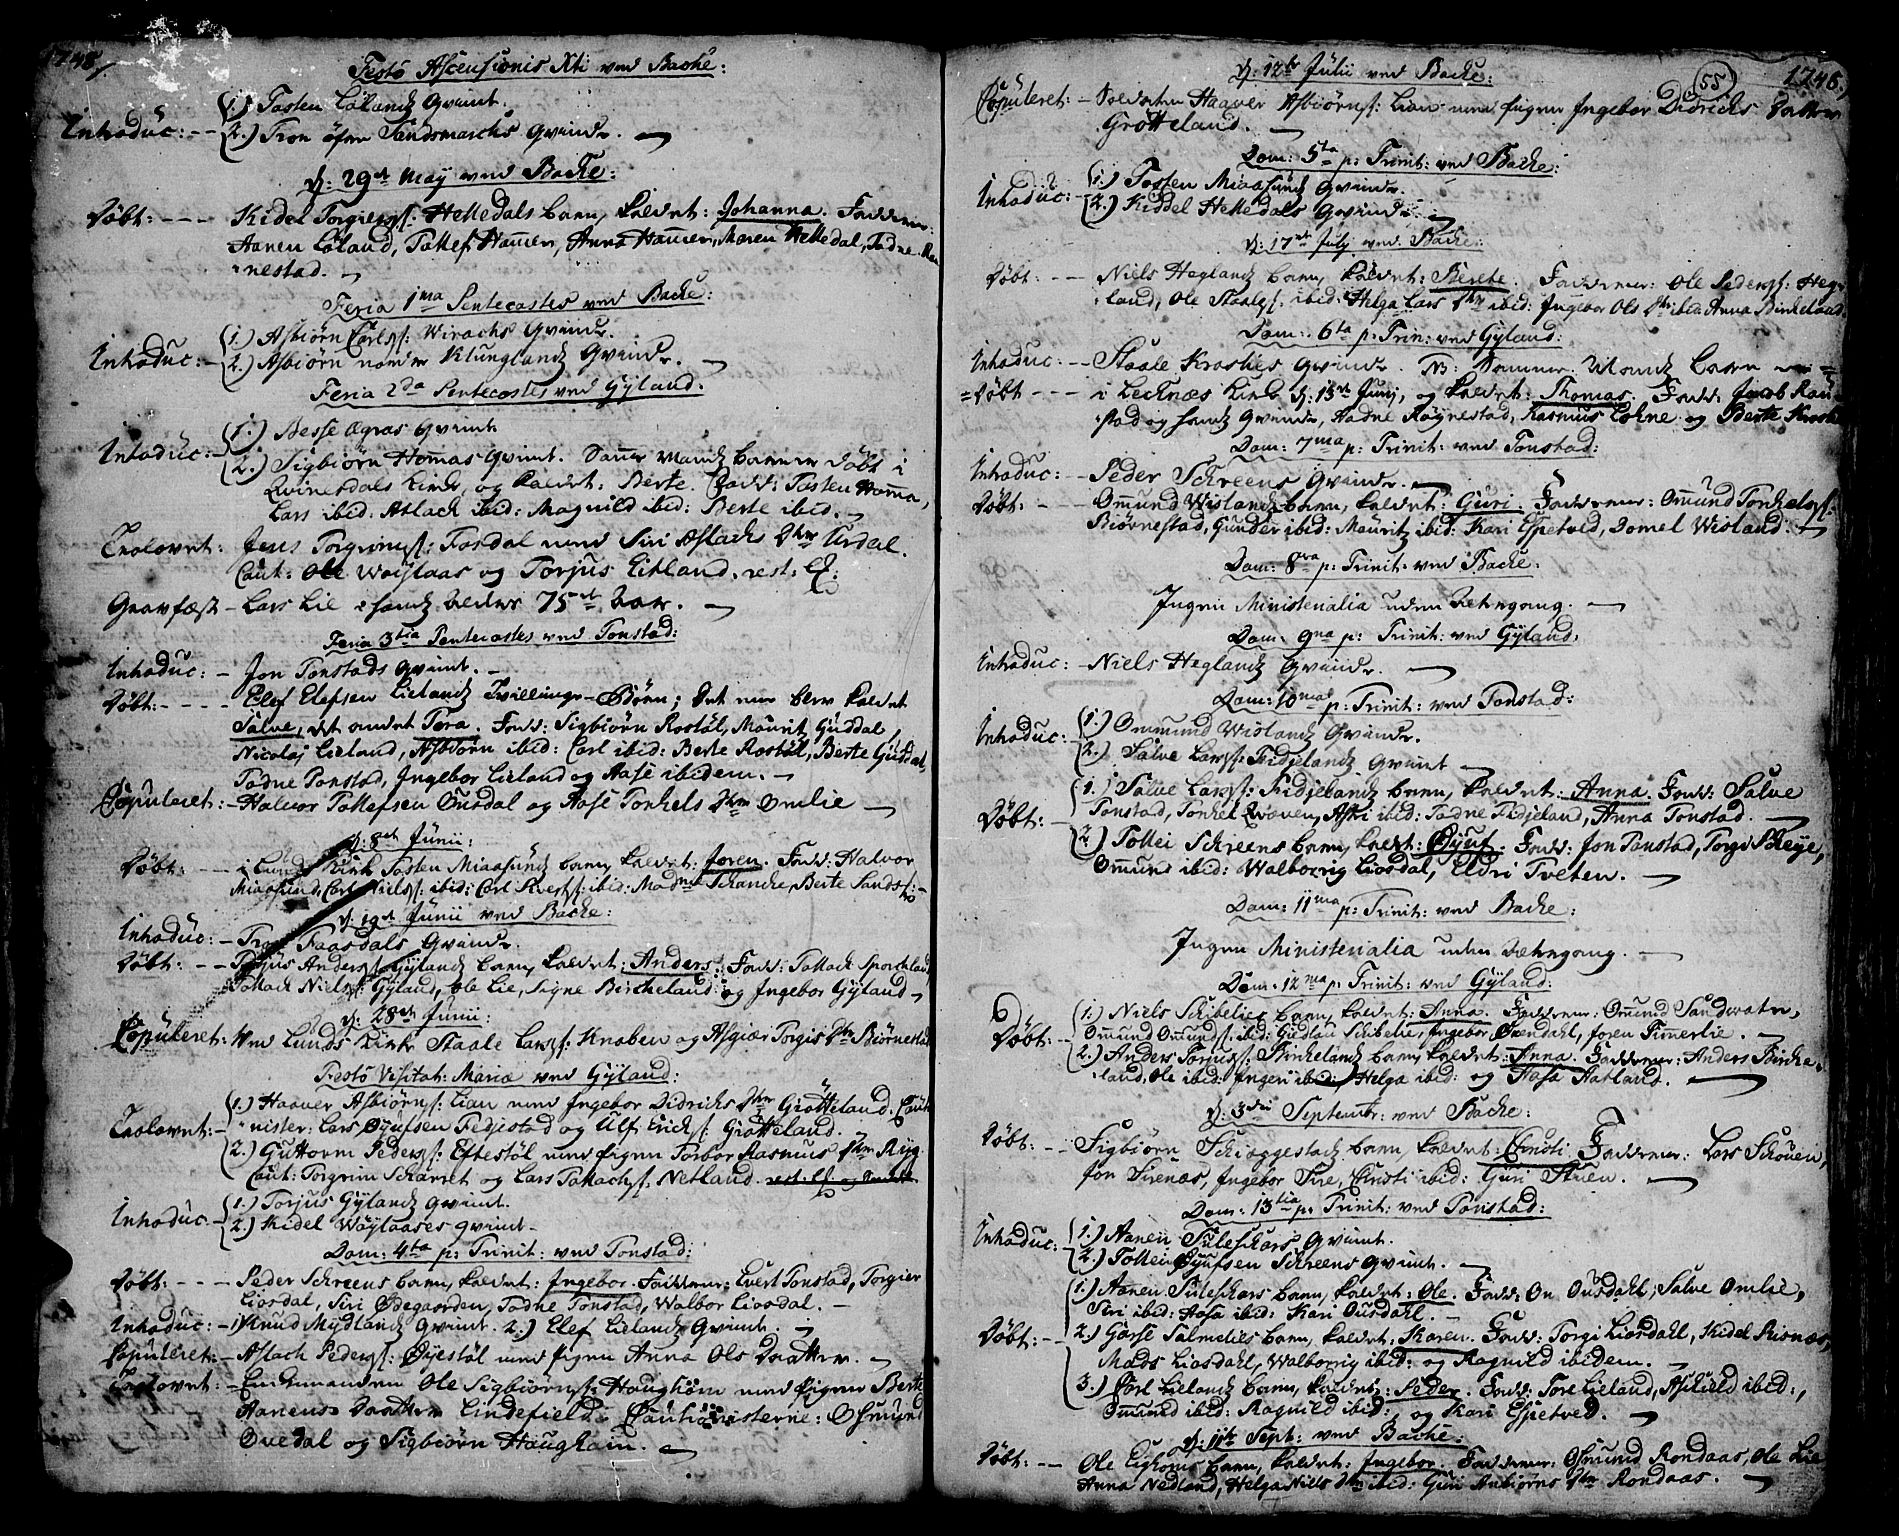 1748.
Festo Ascensionis Xti ved Backe:
Introduc: -- 1.) Tosten Lølands Qvinde.
2.) Tron øfre Sandsmarchs Qvinde.
d: 29de May ved Backe:
Døbt: --- Kidel Torgiels: Helledals barn, kaldet: Johanna. Faddere:
Aanen Løland, Tollef Hamer, Anna Hamer, Maren Helledal, Tadne Ron
nestad.
Feria 1ma Pentecostes ved Backe:
Introduc: - 1.) Asbiørn Carls: Wirachs Qvinde.
2.) Asbiørn nedre Klunglands Qvinde.
Feria 2da Pentecostes ved Gyland:
Introduc: - 1.) Besse Ægras Qvinde
2.) Sigbiørn Hommas Qvinde. Samme Mands barn er døbt i
Qvinesdals Kirke, og kaldet: Berte. Fadd: Tosten Homma,
Lars ibid: Atlack ibid: Magnild ibid: Berte ibid.
Trolovet: Jens Torgrims: Fosdal med Siri Aslachs Dtr Tirdal.
Caut: Ole Wøylaas og Torjus Eitland. rest:
Gravfæst - Lars Lie hands Alder 75de Aar.
Feria 3tia Pentecostes ved Tonstad:
Introduc: - Jon Tonstads Qvinde.
Døbt: ---- Elef Elefsen Lielands Tvillinge-Børn; det ene blev kaldet
Salve, det andet Tora. Fadd: Sigbiørn Rostøl, Mauritz Guddal,
Nicolaj Lieland, Asbiørn ibid: Carl ibid: Berte Rostøl, Berte Guddal,
Tadne Tonstad, Ingebor Lieland og Aase ibidem.
Copuleret: - Halvor Tollefsen Ousdal og Aase Tonkels Dtr Omlie
d: 8de Junii:
Døbt: --- i Lunds Kirke Tosten Miaasunds barn, kaldet: Joren. Fadd: Halvor
Miaasund, Carl Niels: ibid: Carl Ivers: ibid: Madme Schancke, Berte Sands:
d: 19de Junii ved Backe:
Introduc: - Tron Faasdals Qvinde.
Døbt: --- Torjus Anders: Gylands barn, kaldet: Anders. Fadd: Tollack Sporckland,
Tollack Niels: Gyland, Ole Lie, Signe Bircheland og Ingebor Gyland
d: 28de Junii:
Copuleret: Ved Lunds Kirke Staale Lars: Knaben og Asgiær Torgis Dtr Biørnestad
Festo Visitat: Mariæ ved Gyland:
Trolovet: - 1.) Haaver Asbiørns: Lian med Ingebor Didrichs Dtr Grøtteland. Cauti
nister: Lars Øyufsen Fedjestad og Ulf Erichs: Grøtteland.
2.) Guttorm Peders: Eftestøl med Pigen Torbor Rasmus Dtr Ryg.
Caut: Torgrim Schærret og Lars Tollachs: Netland.
Introduc: - 1.) Torjus Gylands Qvinde.
2.) Kidel Wøylaases Qvinde.
Dom: 4ta p: Trinit: ved Tonstad:
Døbt: --- Peder Schreens barn, kaldet: Ingebor. Faddere: Evert Tonstad, Torgier
Liosdal, Siri Ødegaarden, Tadne Tonstad, Walbor Liosdal.
Introduc: - 1.) Knud Mydlands Qvinde. 2.) Elef Lielands Qvinde.
Copuleret: - Aslach Peders: Øyestøl med Pigen Anna Ols Datter.
Trolovet: - Enckemanden Ole Sigbiørns: Haughom med Pigen Berte
Aanens Datter Lindefield. Cautionisterne: Osmund
Ovedal og Sigbiørn Haughom.
55
1748.
d: 12te Julii ved Backe:
Copuleret: - Soldaten Haaver Asbiørns: Lian med Pigen Ingebor Didrichs Datter
Grøtteland.
Dom: 5ta p: Trinit: ved Backe:
Introduc: - 1.) Tosten Miaasunds Qvinde.
2.) Kiddel Helledals Qvinde.
d: 17de July ved Backe:
Døbt: --- Niels Heglands barn, kaldet: Berete. Faddere: Ole Peders: Heg-
land, Ole Staales: ibid: Helga Lars Dtr ibid: Ingebor Ols Dtr ibid: Anna Birkeland.
Dom: 6ta p: Trin: ved Gyland:
Introduc: -- Staale Kroshes Qvinde. NB: Samme Mands barn er
Døbt --- i Lecknæs Kirke d: 13de Junij, og kaldet: Thomas. Fadd: Jacob Rau-
stad og hands Qvinde, Aadne Røynestad, Rasmus Lohne og Berte Kroshe.
Dom: 7ma p: Trinit: ved Tonstad:
Introduc: - Peder Schreens Qvinde.
Døbt: --- Ommund Wislands barn, kaldet: Guri. Faddere: Ommund Tonkels:
Biørnestad, Gunder ibid: Mauritz ibid: Kari Espetved, Domel Wisland.
Dom: 8va p: Trinit: ved Backe:
Ingen Ministerialia uden Tachegang.
Dom: 9na p: Trinit: ved Gyland:
Introduc: - Niels Heglands Qvinde.
Dom: 10ma p: Trinit: ved Tonstad:
Introduc: 1.) Ommund Wislands Qvinde.
2.) Salve Lars: Fidjelands Qvinde
Døbt: - 1.) Salve Lars: Fidjelands barn, kaldet: Anna. Fadd: Salve
Tonstad, Tonkel Qvæven, Aski ibid: Tadne Fidjeland, Anna Tonstad.
2.) Tollei Schreens barn, kaldt: Øyuf. Fadd: Jon Tonstad, Torgi Skeye,
Ommund ibid: Walborrig Liosdal, Eldri Tveten.
Dom: 11ma p: Trinit: ved Backe:
Ingen Ministerialia uden Tachegang.
Dom: 12ma p: Trinit: ved Gyland:
Døbt: - 1.) Niels Schibelies barn, kaldet: Anna. Faddere: Omund Sandvatn,
Ommund Ommunds: ibid: Gudlau Schibelie, Ingebor Øxendahl, Joren Timmerlie.
2.) Anders Torjus: Birkelands barn, kaldet: Anna. Faddere: Anders Birke-
land, Ole ibid: Ingeri ibid: Helga ibid: og Aasa Aatland.
d: 3die Septembr: ved Backe:
Døbt: -- Sigbiørn Schioggestads barn, kaldet: Christi. Faddere: Lars Schouen,
Jon Sirenæs, Ingebor Sire, Christi ibid: Guri Stuen.
Dom: 13tia p: Trinit: ved Tonstad:
Introduc: 1.) Aanen Suleschars Qvinde.
2.) Tollei Øyufsen Schreens Qvinde.
Døbt: -- 1.) Aanen Suleskars barn, kaldet: Ole. Fadd: On Ousdahl, Salve Omlie,
Siri ibid: Aasa ibid: Kari Ousdahl.
2.) Gorse Salmelies barn, kaldet: Karen. Fadd: Torgi Liosdahl, Kidel Risnæs,
Mads Liosdahl, Walborrig ibid: og Ragnild ibidem.
3.) Carl Lielands barn, kaldet: Peder. Fadd: Tore Lieland, Askield ibid:,
Ommund ibid: Ragnild ibid: og Kari Espetved.
d: 11te Sept: ved Backe:
Døbt: -- Ole Eighoms barn, kaldet: Ingebor. Faddere: Osmund Rondaas, Ole Lie
Anna Nedland, Helga Niels Dtr ibid: Guri Anbiørns Dtr Rondaas.